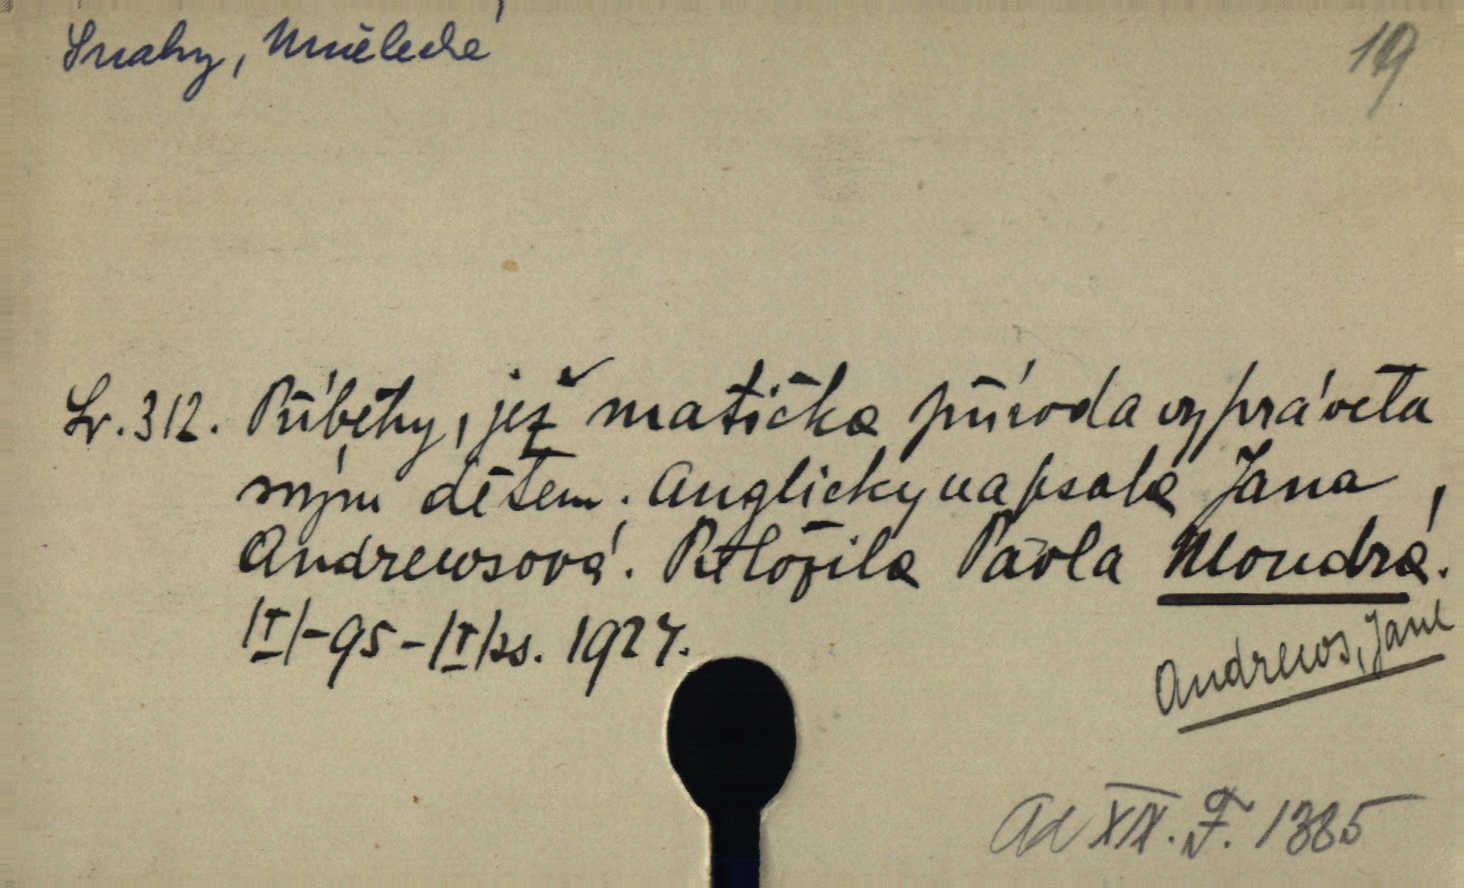 Snahy, Umělecké
19
Sv. 312. Příběhy, jež matička příroda vyprávěla
svým dětem. Anglicky napsala Jana
Andrewsová. Přeložila Pavla Moudrá.
|I|-95-|I| s. 1927.
Andrews, Jane
Ad XIX. F. 1385